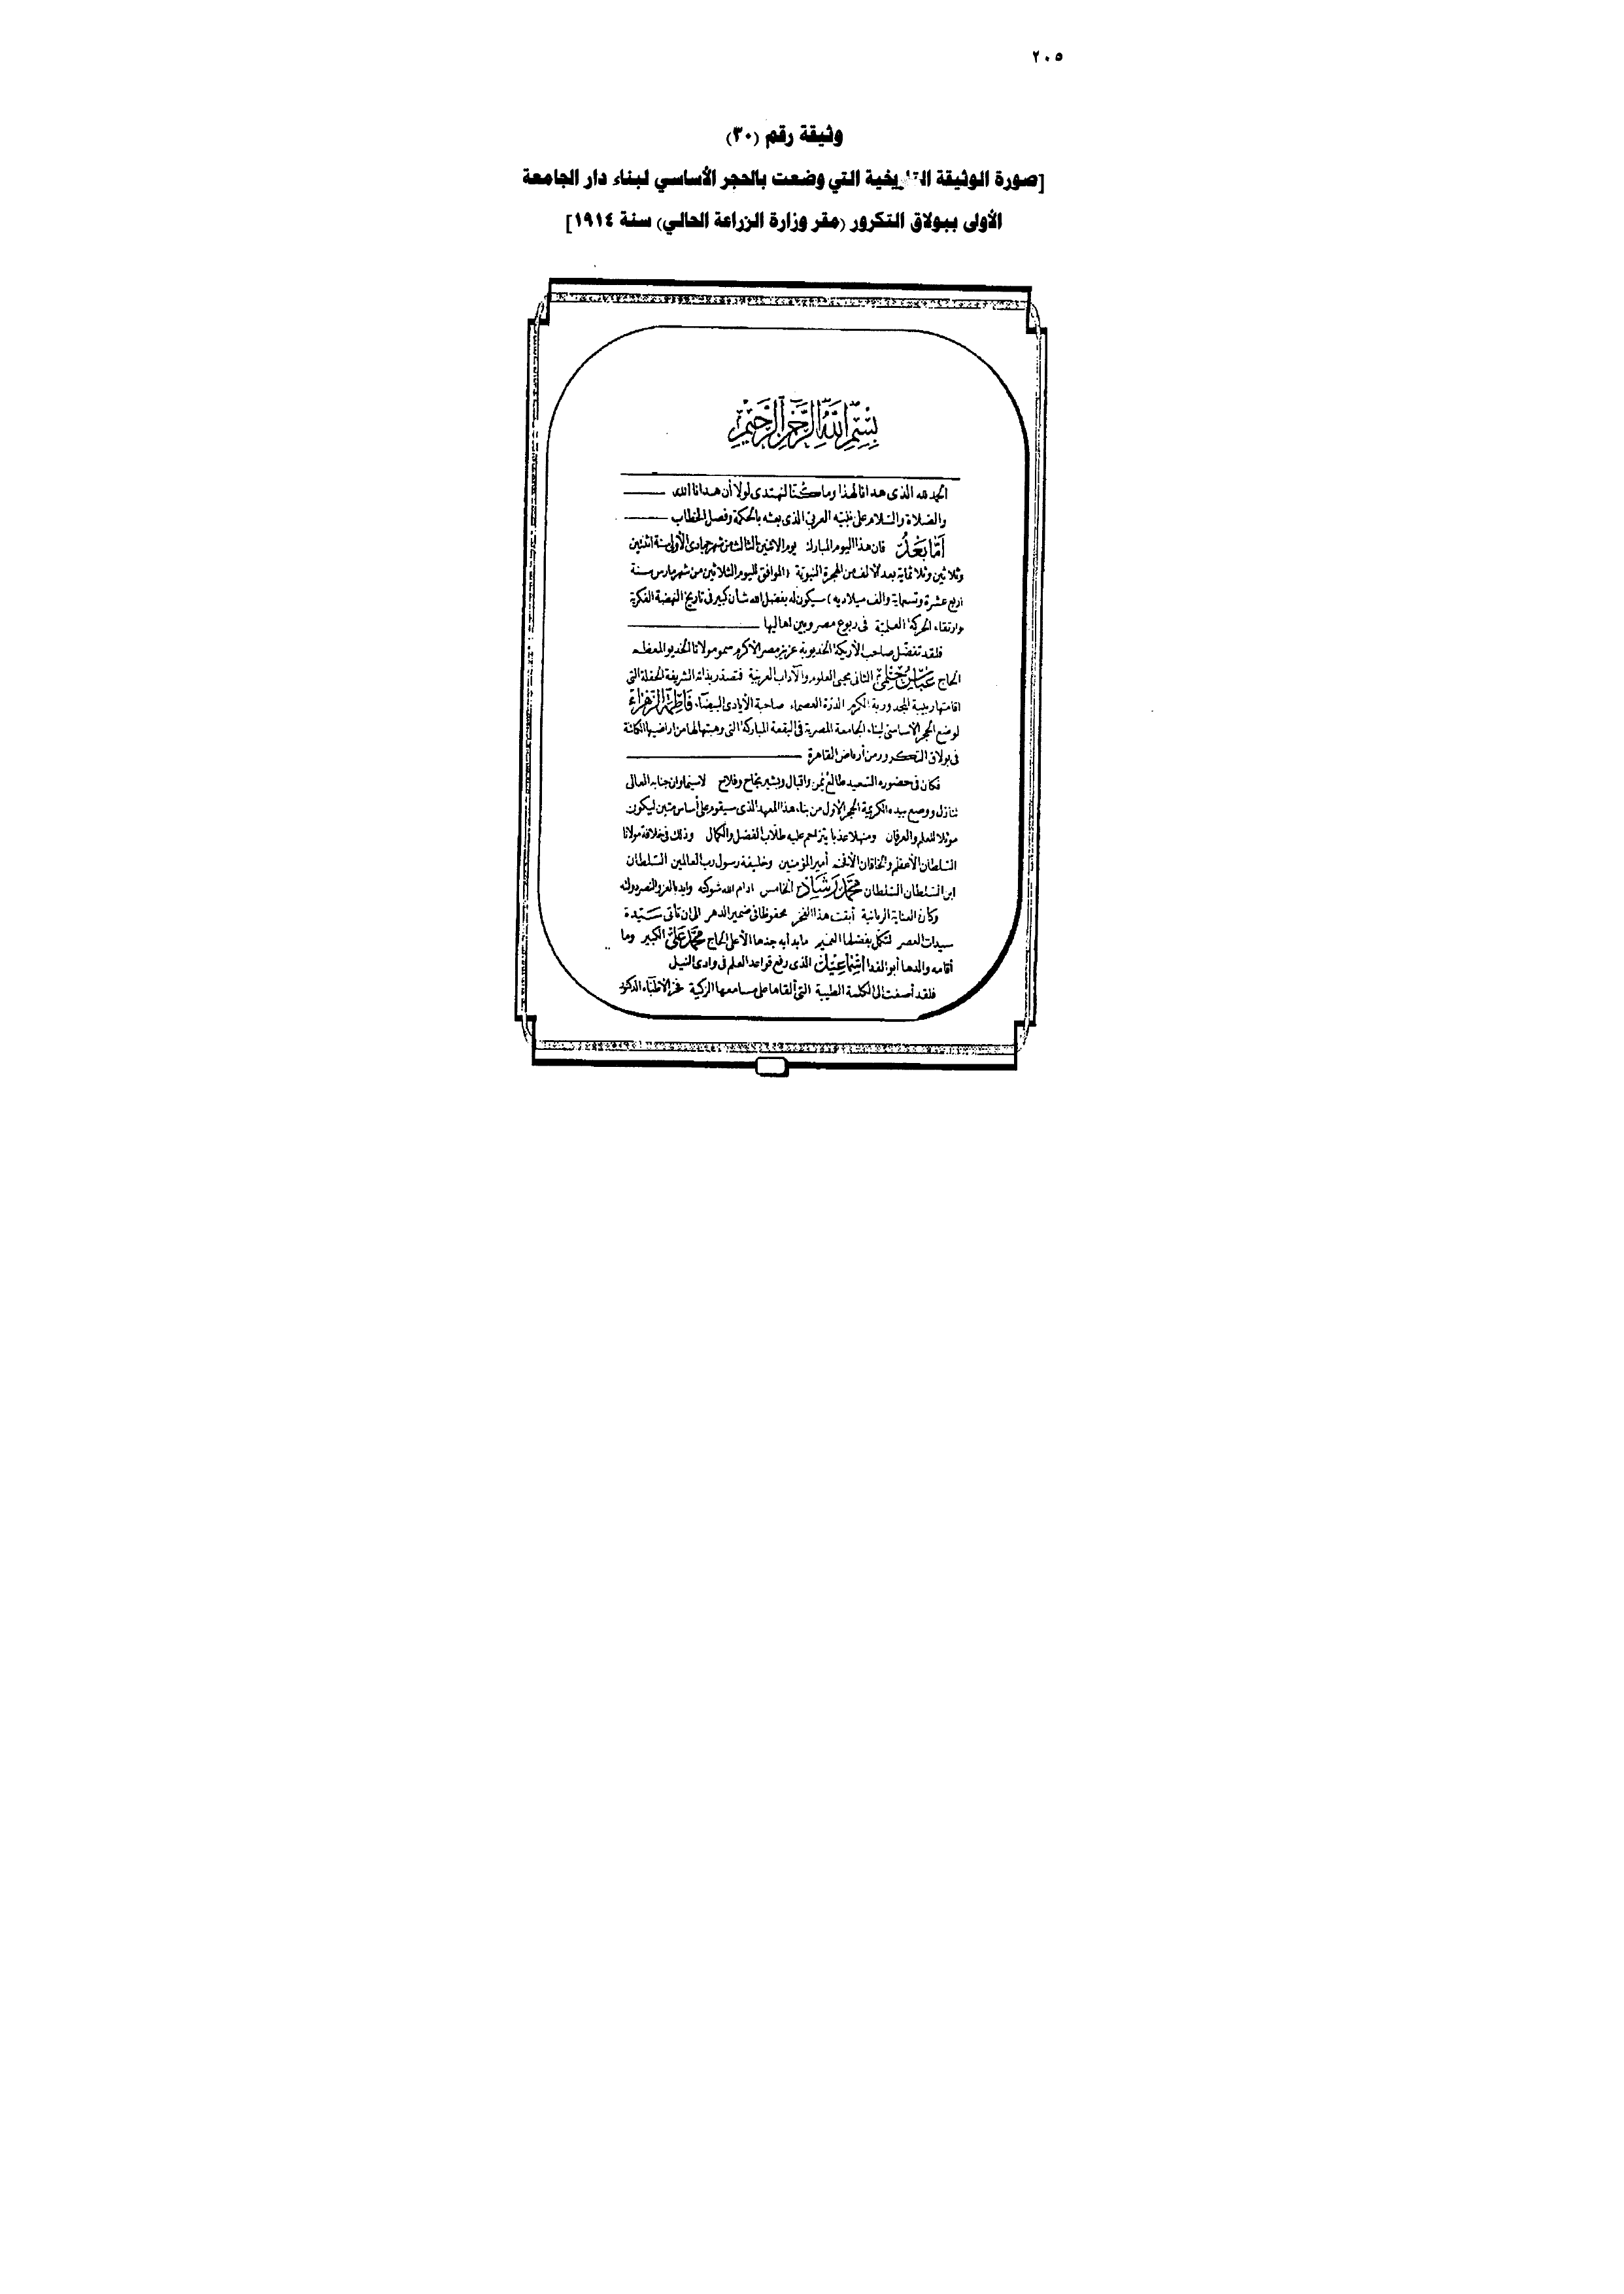 ٢٠٥
وثيقة رقم (٣٠)
[صورة الوثيقة التاريخية التي وضعت بالحجر الأساسي لبناء دار الجامعة
الأولى ببولاق التكرور (مقر وزارة الزراعة الحالي) سنة ١٩١٤]
بسم الله الرحمن الرحيم
الحمد لله الذى هدانا لهذا وما كنا لنهتدى لولا أن هدانا الله
والصلاة والسلام على نبيه العربى الذى بعثه بالحكمة وفصل الخطاب
أما بعد فان هذا اليوم المبارك يوم الاثنين الثالث من شهر جمادى الأولى سنة اثنتين
وثلاثين وثلاثماية بعد الألف من الهجرة النبوية (الموافق لليوم الثلاثين من شهر مارس سنة
اربع عشرة وتسعماية والف ميلاديه) سيكون له بفضل الله شأن كبير فى تاريخ النهضة الفكرية
وارتقاء الحركة العلمية فى ربوع مصر وبين اهاليها
فلقد تفضل صاحب الأريكة الخديوية عزيز مصر الأكرم سمو مولانا الخديو المعظم
الحاج عباس حلمى الثانى محيى العلوم والآداب العربية فتصدر بذاته الشريفة الحفلة التى
اقامتها ربيبة المجد وربة الكرم الدرة العصماء صاحبة الأيادى البيضاء فاطمة الزهراء
لوضع الحجر الأساسى لبناء الجامعة المصرية فى البقعة المباركة التى وهبتها لها من اراضيها الكائنة
فى بولاق التكرور من أرباض القاهرة
فكان فى حضوره السعيد طالع يمن واقبال وبشير نجاح وفلاح لاسيما وان جنابه العالى
تنازل ووضع بيده الكريمة الحجر الأول من بناء هذا المعهد الذى سيقوم على أساس متين ليكون
موئلا للعلم والعرفان ومنهلا عذبا يتزاحم عليه طلاب الفضل والكمال وذلك فى خلافة مولانا
السلطان الأعظم والخاقان الأفخم أمير المؤمنين وخليفة رسول رب العالمين السلطان
ابن السلطان السلطان محمد رشاد الخامس ادام الله شوكته وايد بالعز والنصر دولته
وكأن العناية الربانية أبقت هذا الفخر محفوظا فى ضمير الدهر الى ان تأتى سيدة
سيدات العصر لتكمل بفضلها العميم ما بدأ به جدها الأعلى الحاج محمد على الكبير وما
أقامه والدها أبو الفدا اسماعيل الذى رفع قواعد العلم فى وادى النيل
فلقد أصغت الى الكلمة الطيبة التى ألقاها على مسامعها الزكية فخر الأطباء الدكتور